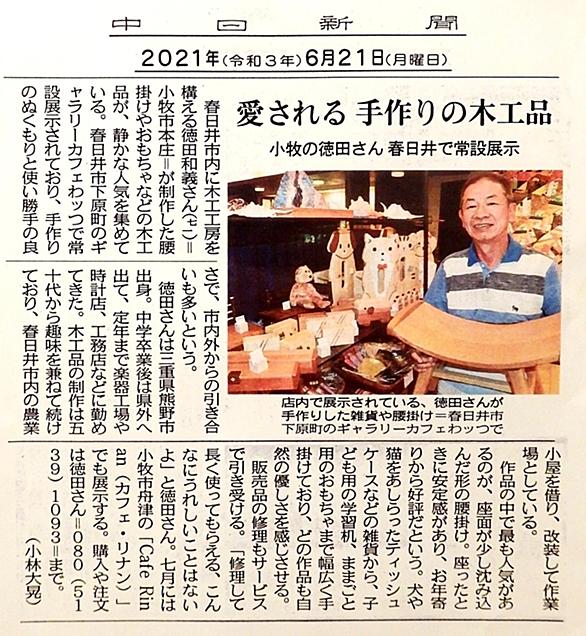 中日新聞
2021年(令和3年)6月21日(月曜日)
愛される 手作りの木工品
小牧の徳田さん 春日井で常設展示
春日井市内に木工工房を
構える徳田和義さん(七一)=
小牧市本庄=が制作した腰
掛けやおもちゃなどの木工
品が、静かな人気を集めて
いる。春日井市下原町のギ
ャラリーカフェわッつで常
設展示されており、手作り
のぬくもりと使い勝手の良
さで、市内外からの引き合
いも多いという。
徳田さんは三重県熊野市
出身。中学卒業後は県外へ
出て、定年まで楽器工場や
時計店、工務店などに勤め
てきた。木工品の制作は五
十代から趣味を兼ねて続け
ており、春日井市内の農業
店内で展示されている、徳田さんが
手作りした雑貨や腰掛け=春日井市
下原町のギャラリーカフェわッつで
小屋を借り、改装して作業
場としている。
作品の中で最も人気があ
るのが、座面が少し沈み込
んだ形の腰掛け。座ったと
きに安定感があり、お年寄
りから好評だという。犬や
猫をあしらったティッシュ
ケースなどの雑貨から、子
ども用の学習机、ままごと
用のおもちゃまで幅広く手
掛けており、どの作品も自
然の優しさを感じさせる。
販売品の修理もサービス
で引き受ける。「修理して
長く使ってもらえる、こん
なにうれしいことはない
よ」と徳田さん。七月には
小牧市舟津の「Cafe Rin
an(カフェ・リナン)」
でも展示する。購入や注文
は徳田さん=080(51
39)1093=まで。
(小林大晃)